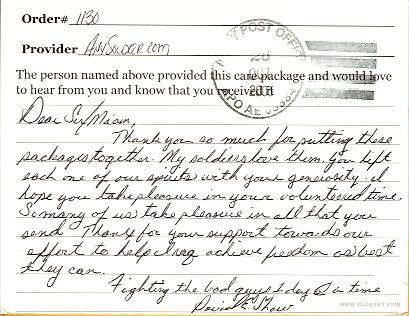 Order# 1130
Provider AnySoldier.com
The person named above provided this care package and would love
to hear from you and know that you received it
ARMY POST OFFICE
APO AE
Dear Sir/Ma'am,
Thank you so much for putting these
packages together. My soldiers love them. You lift
each one of our spirits with your generosity. I
hope you take pleasure in your volunteered time.
So many of us take pleasure in all that you
send. Thanks for your support towards our
effort to help Iraq achieve freedom as best
they can.
Fighting the bad guys 1 day @ a time
David E.
www.vistaprint.com